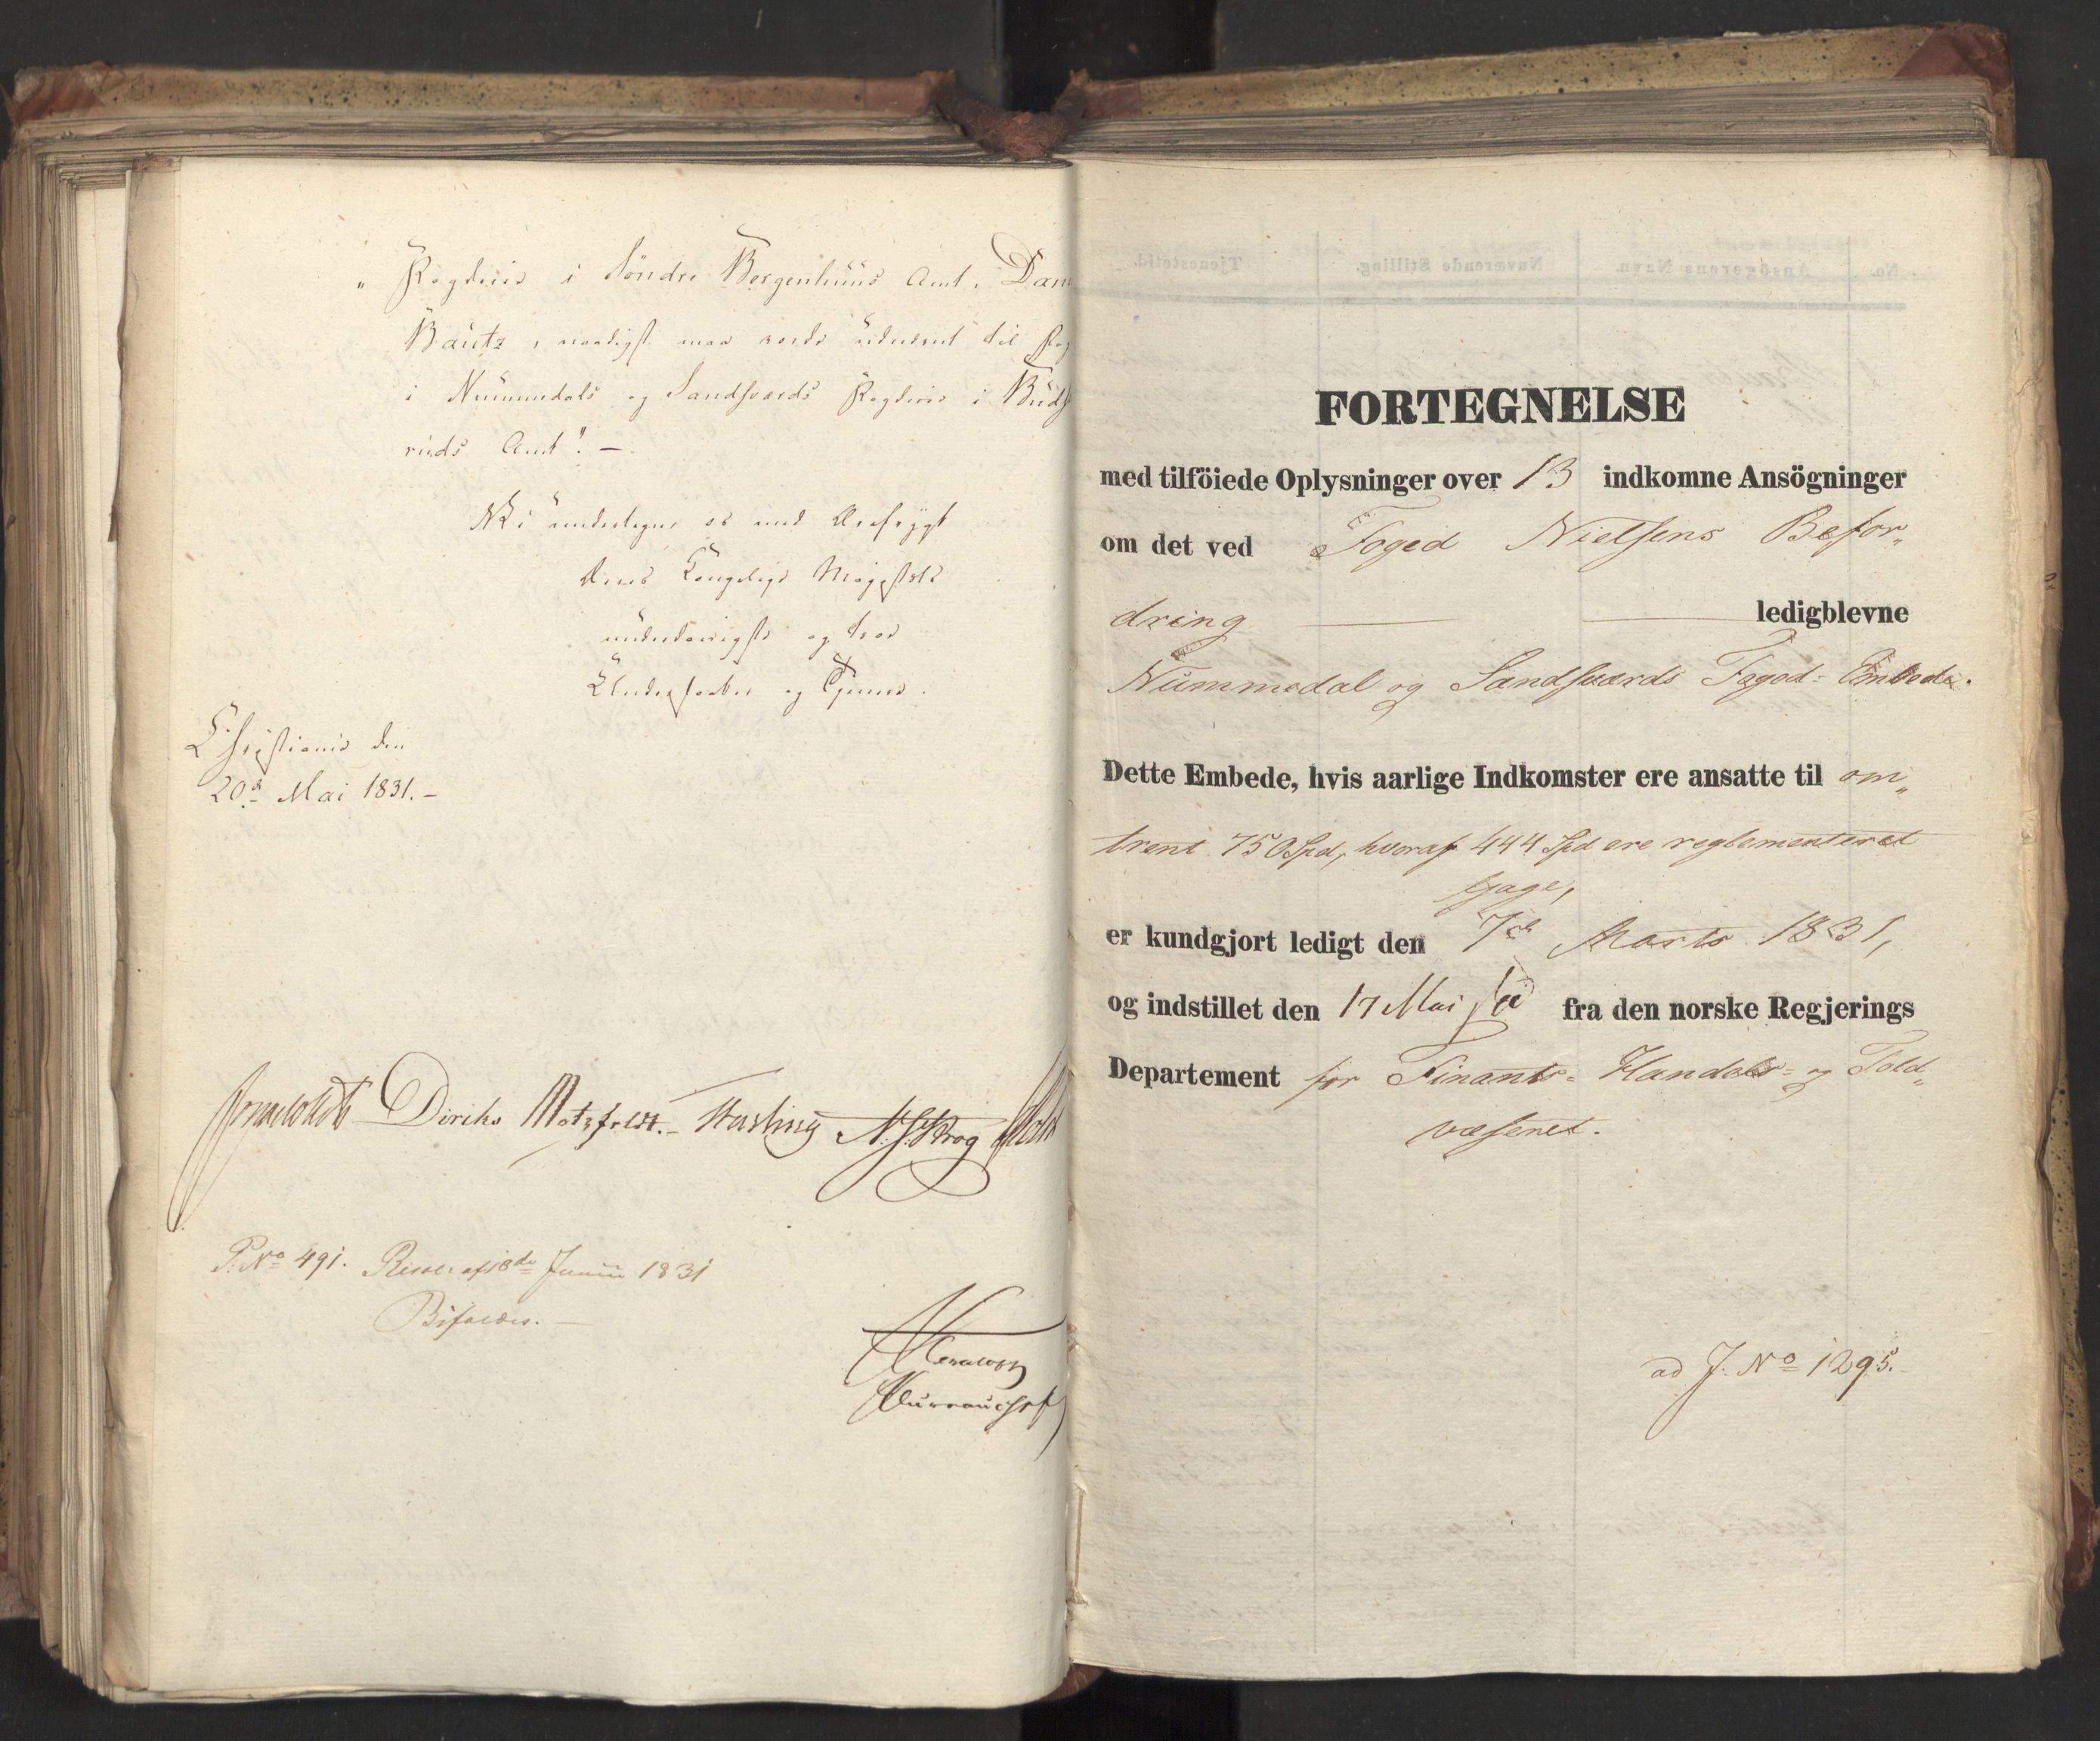 „ Fogderie i Söndre Bergenhuus Amt, Dan
Bautz, naadigst maa vorde udnævnt til Fog
i Nummedals og Sandsværds Fogderie i Budſ
ruds Amt". —
Vi undertegne os med Ærefrygt
Deres Kongelige Majestæts
underdanigste og troe
Undersaatter og Tjenere.
Christiania den
20de Mai 1831. –
Diriks Motzfeldt. – N. J. Krog Holst
P. No 491. Resol: af 8de Junii 1831
Bifaldes. —
FORTEGNELSE
med tilföiede Oplysninger over 13 indkomne Ansögninger
om det ved Foged Nielsens Befor„
dring — — ledigblevne
Nummedal og Sandsværds Foged=Embede.
Dette Embede, hvis aarlige Indkomster ere ansatte til om„
trent 750 Spd, hvoraf 444 Spd ere reglementeret
Gage,
er kundgjort ledigt den 7de Marts 1831,
og indstillet den 17 Mai s. A. fra den norske Regjerings
Departement for Finants= Handels= og Told„
væsenet.
ad J. No 1295.